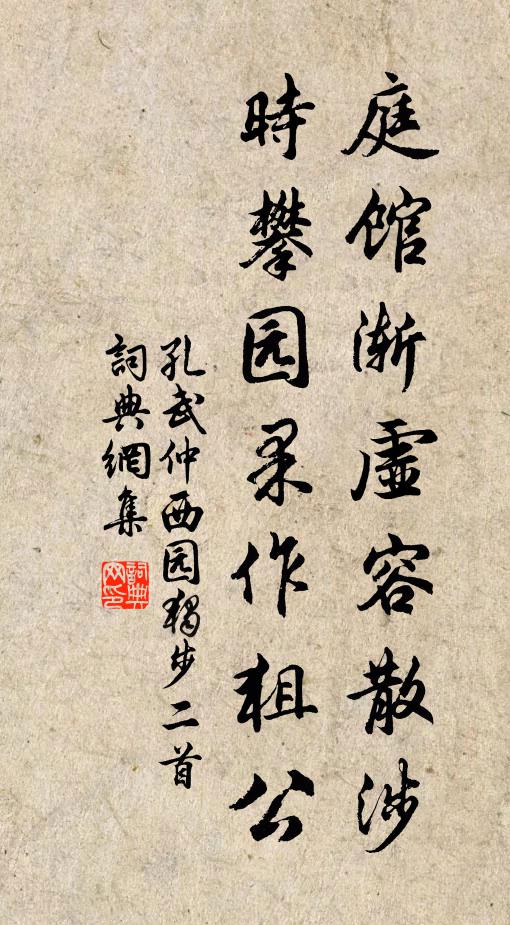 庭馆渐虚容散涉
时攀园果作狙公
孔武仲西园独步二首
詞典網集
詞典网印